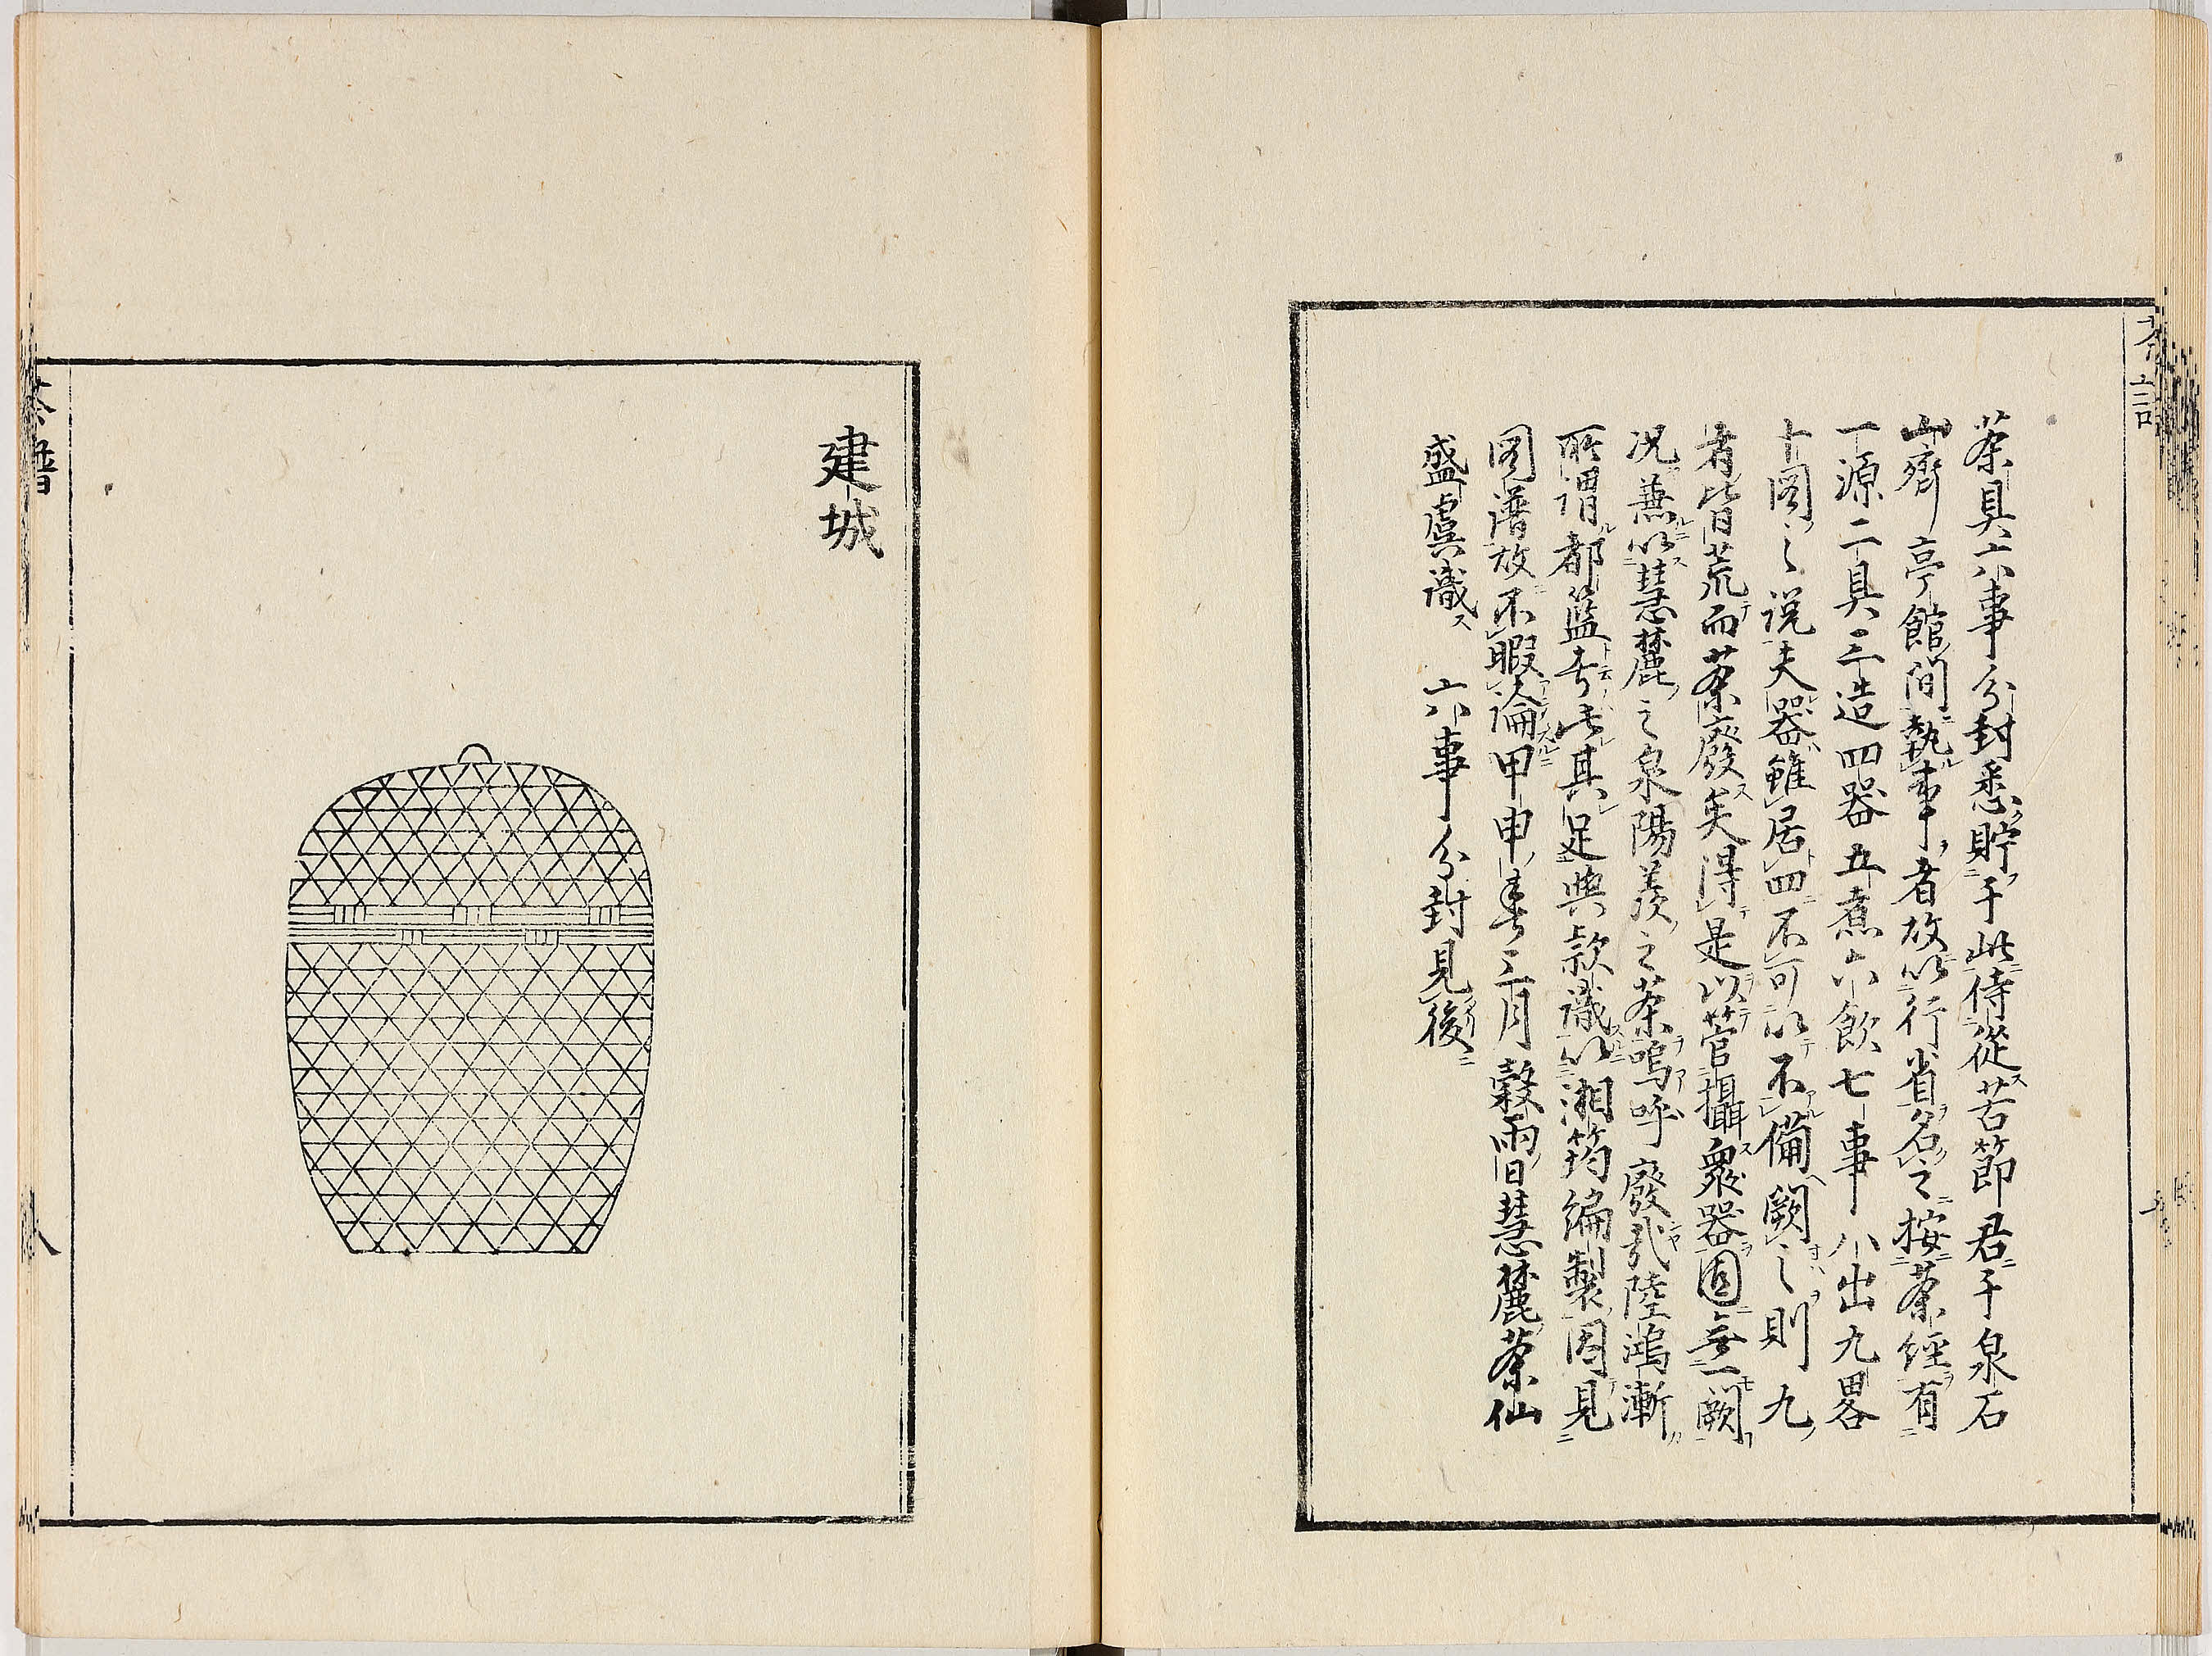 茶具六事分封悉貯于此侍從苦節君于泉石
山齊亭館間執事者故以行省名之按茶經有
一源二具三造四器五煮六飲七事八出九畧
十圖之説夫器雖居四不可以不備闕之則九
者皆荒而茶廢矣得是以菅攝衆器固無一闕
况兼以慧麓之泉陽羨之茶嗚呼廢哉陸鴻漸
所謂都籃者此其足與款識以湘筠編製因見
圖譜故不暇論甲申春三月穀雨日慧麓茶仙
盛虞識　六事分封見後
建城
茶譜
八
茶譜